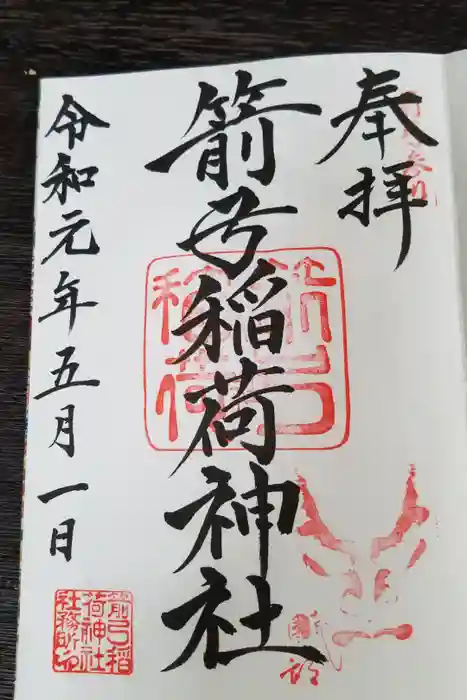 奉拝
箭弓稲荷神社
令和元年五月一日
箭弓稲荷
箭弓稲荷神社社務所印